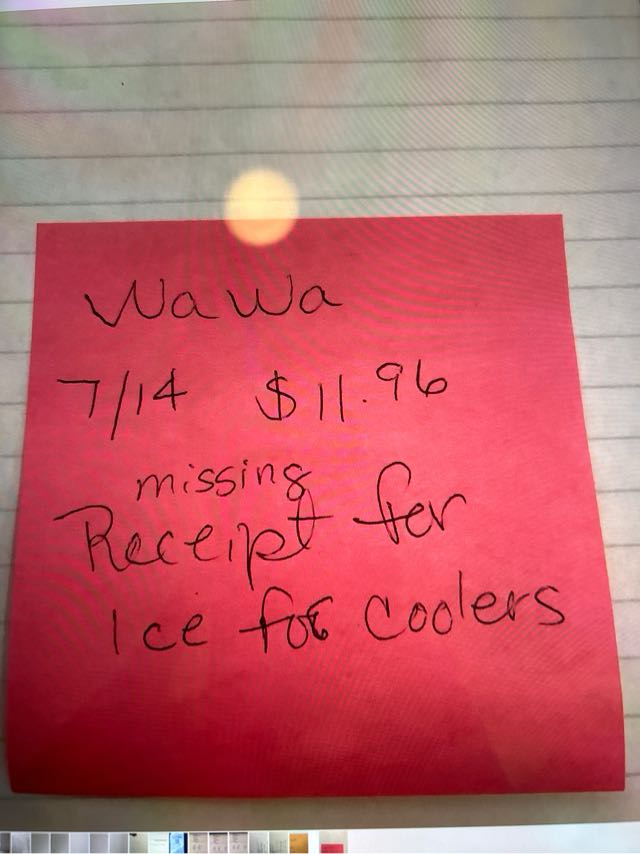 WaWa
7/14 $11.96
missing
Receipt for
Ice for coolers